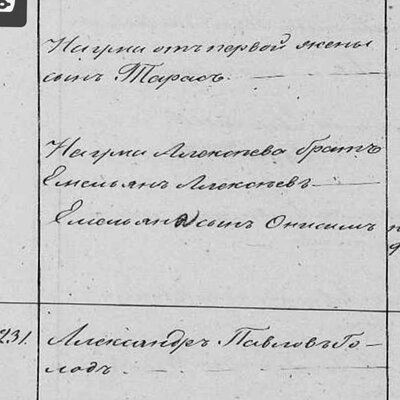 Наума отъ первой жены
сынъ Тарасъ.
Наума Алексѣева братъ
Емельянъ Алексѣевъ
Емельяна сынъ Онисимъ
231. Александръ Павловъ Го-
лодъ.